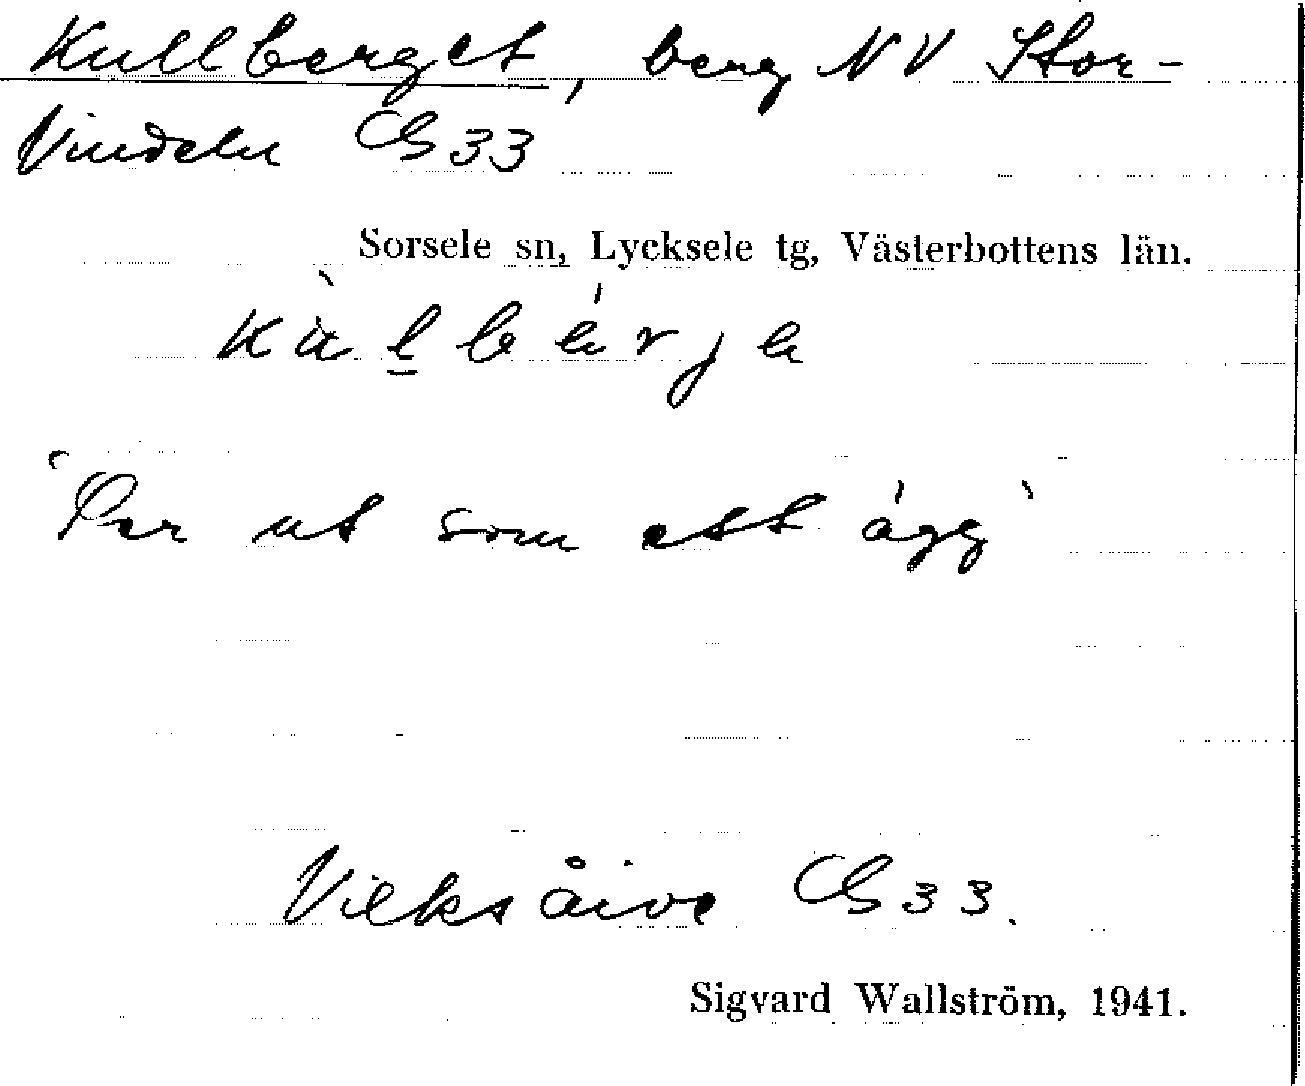 Kullberget, berg NV Stor-
Vindeln GS 33
Sorsele sn, Lycksele tg, Västerbottens län.
"Ser ut som ett ägg"
Vielksåive GS 33.
Sigvard Wallström, 1941.